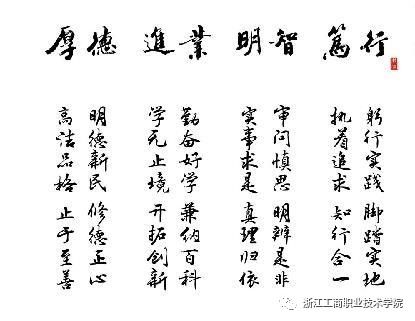 厚德 進業 明智 篤行
明德新民 修德正心
高洁品格 止于至善
勤奋好学 兼纳百科
学无止境 开拓创新
审问慎思 明辨是非
实事求是 真理归依
躬行实践 脚踏实地
执着追求 知行合一
浙江工商职业技术学院